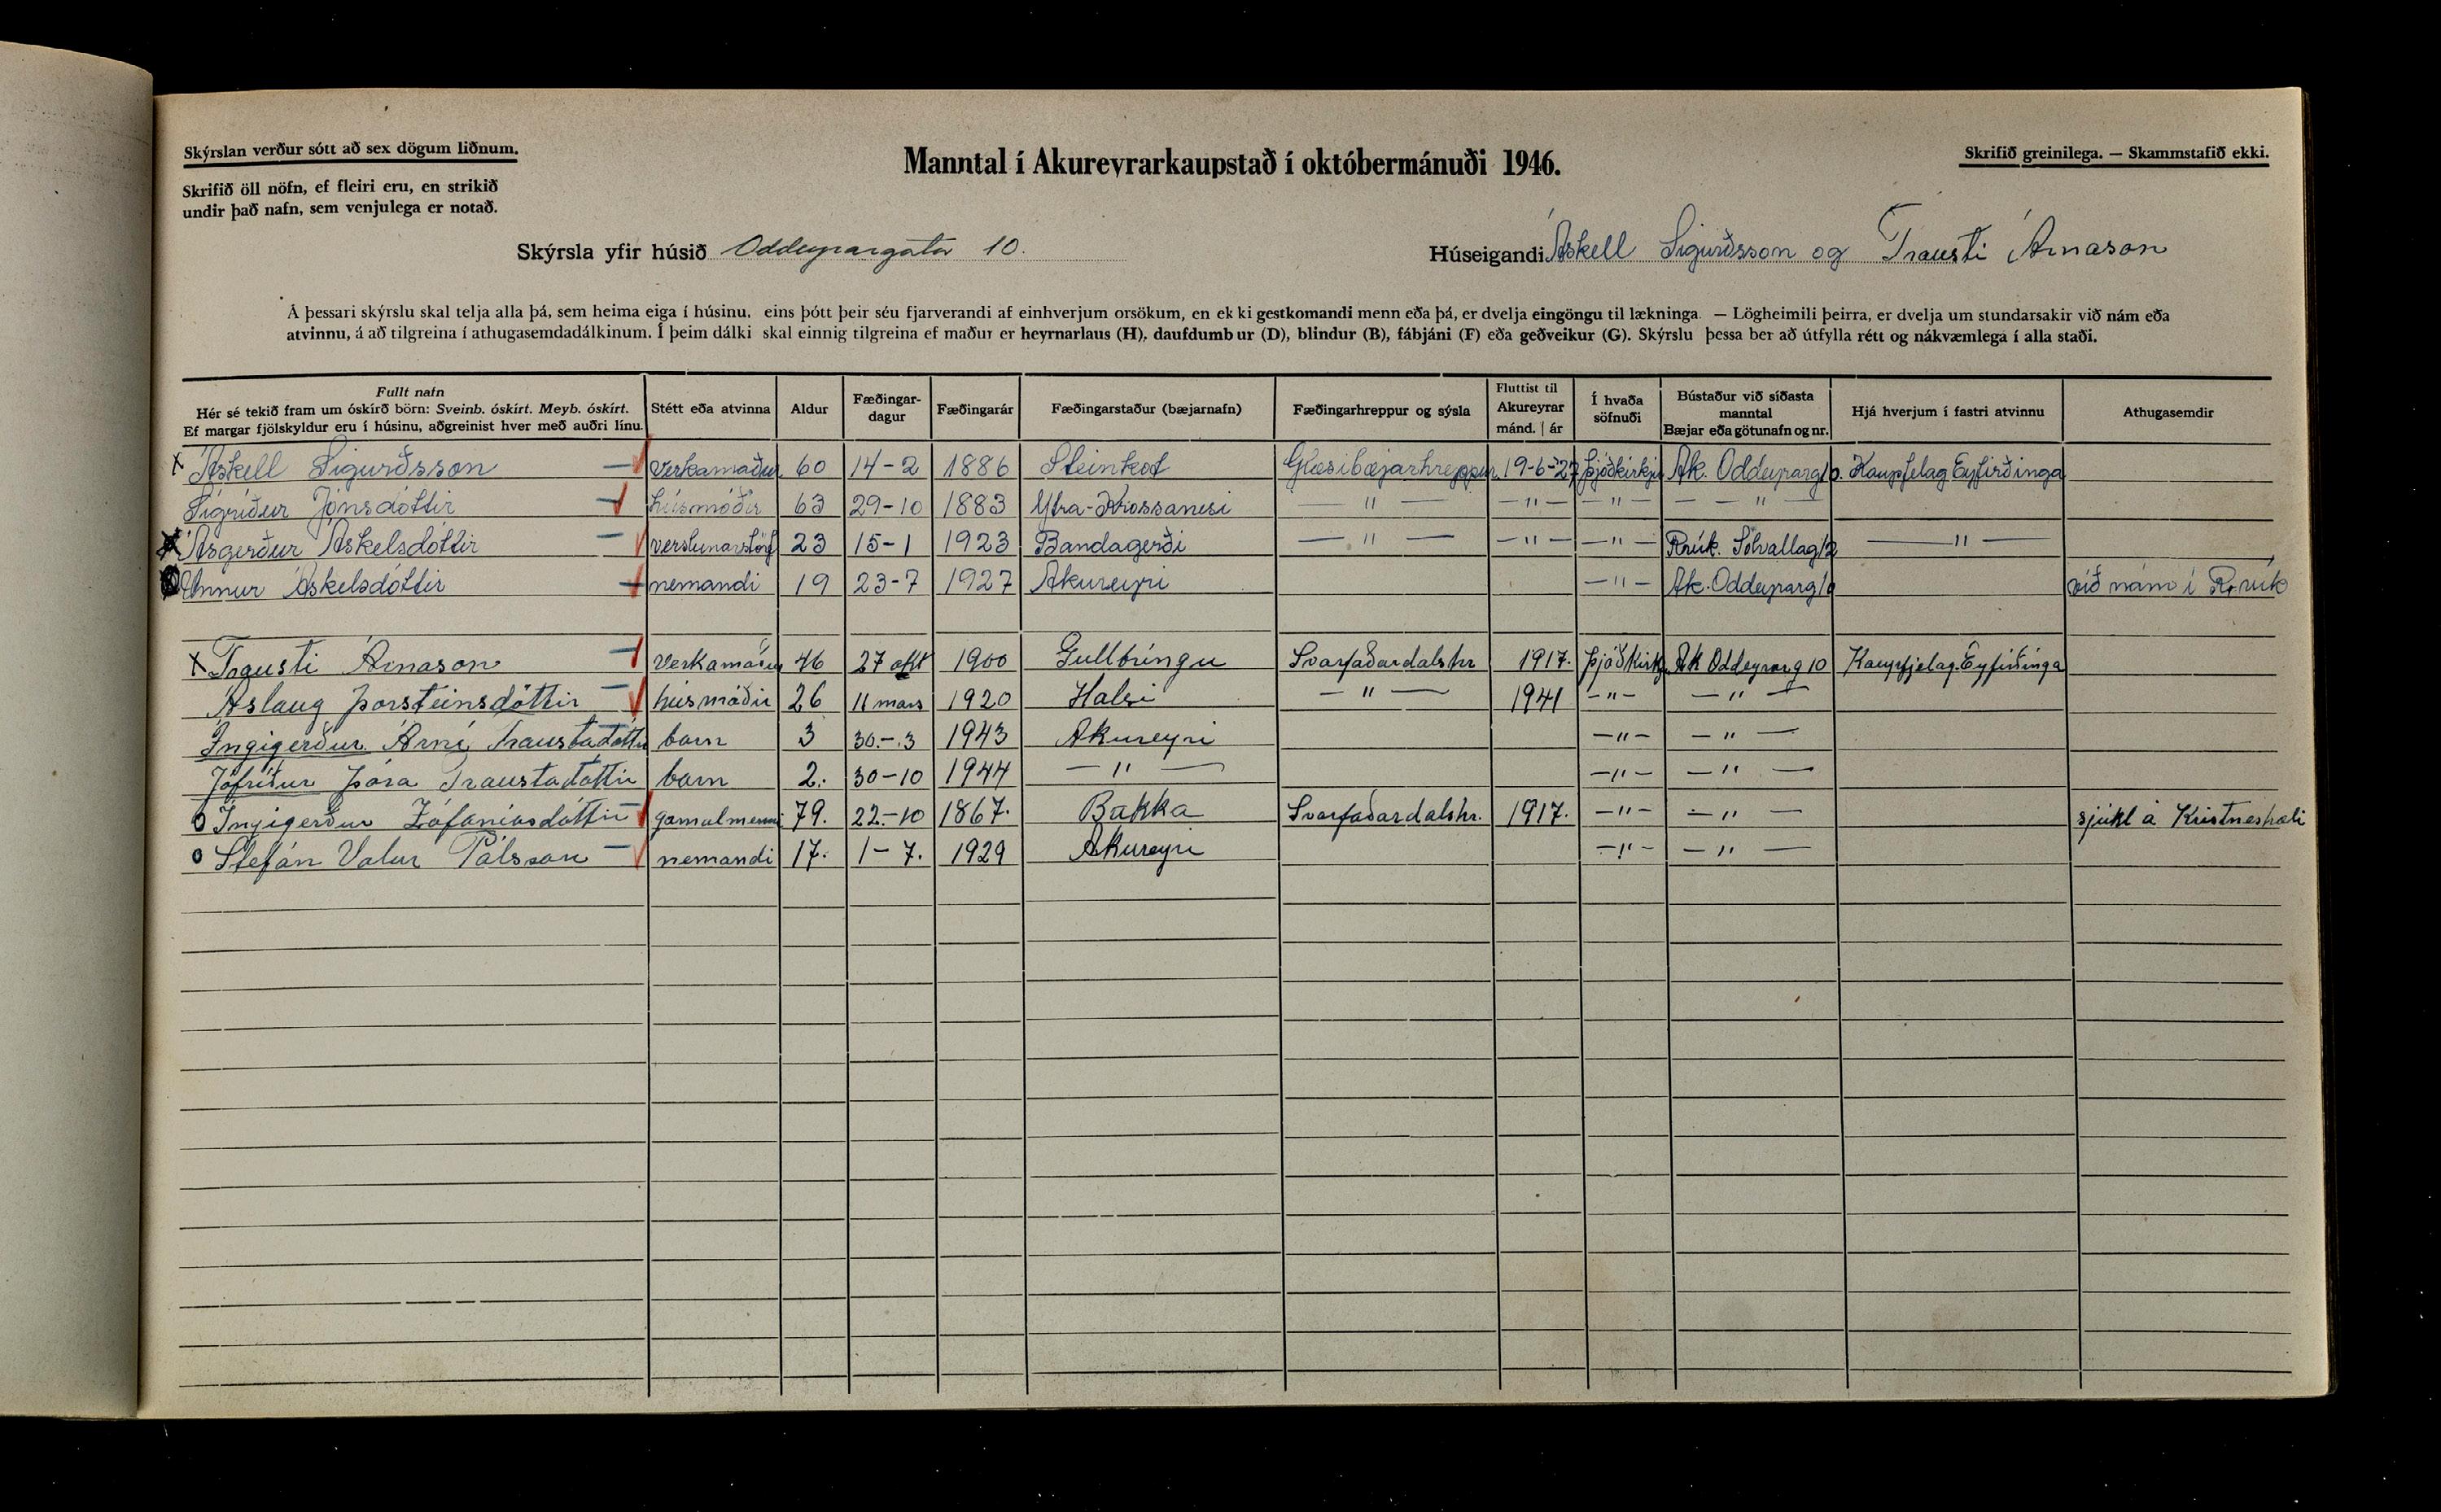 Skýrslan verður sótt að sex dögum liðnum.
Manntal í Akureyrarkaupstað í októbermánuði 1946.
Skrifið greinilega. — Skammstafið ekki.
Skrifið öll nöfn, ef fleiri eru, en strikið
undir það nafn, sem venjulega er notað.
Skýrsla yfir húsið Oddeyrargata 10.
Húseigandi Áskell Sigurðsson og Trausti Árnason
Á þessari skýrslu skal telja alla þá, sem heima eiga í húsinu, eins þótt þeir séu fjarverandi af einhverjum orsökum, en ekki gestkomandi menn eða þá, er dvelja eingöngu til lækninga. — Lögheimili þeirra, er dvelja um stundarsakir við nám eða
atvinnu, á að tilgreina í athugasemdadálkinum. Í þeim dálki skal einnig tilgreina ef maður er heyrnarlaus (H), daufdumbur (D), blindur (B), fábjáni (F) eða geðveikur (G). Skýrslu þessa ber að útfylla rétt og nákvæmlega í alla staði.
Fullt nafn
Hér sé tekið fram um óskírð börn: Sveinb. óskírt. Meyb. óskírt.
Ef margar fjölskyldur eru í húsinu, aðgreinist hver með auðri línu.
Stétt eða atvinna
Aldur
Fæðingar-
dagur
Fæðingarár
Fæðingarstaður (bæjarnafn)
Fæðingarhreppur og sýsla
Fluttist til
Akureyrar
mánd. | ár
Í hvaða
söfnuði
Bústaður við síðasta
manntal
Bæjar eða götunafn og nr.
Hjá hverjum í fastri atvinnu
Athugasemdir
x Áskell Sigurðsson — verkamaður 60 14-2 1886 Steinkot Glæsibæjarhreppur 19-6-27 þjóðkirkju Ak. Oddeyrarg 10. Kaupfelag Eyfirðinga
Sigríður Jónsdóttir — húsmóðir 63 29-10 1883 Ytra-Krossanesi — " — — " — — " — — " —
x Ásgerður Áskelsdóttir — verslunarstörf 23 15-1 1923 Bandagerði — " — — " — — " — Rvík. Sólvallag 12 — " —
Unnur Áskelsdóttir — nemandi 19 23-7 1927 Akureyri — " — Ak. Oddeyrarg 10 við nám í Rvík
x Trausti Árnason — Verkamaður 46 27 okt 1900 Gullbringu Svarfaðardalshr 1917. Þjóðkirkj Ak Oddeyrarg 10 Kaupfjelag. Eyfirðinga
Áslaug Þorsteinsdóttir — húsmóðir 26 11 mars 1920 Halsi — " — 1941 — " — — " —
Ingigerður Árný Traustadóttir barn 3 30.-3 1943 Akureyri — " — — " —
Jófríður Þóra Traustadóttir barn 2. 30-10 1944 — " — — " — — " —
o Ingigerður Zófaníasdóttir — gamalmenni 79. 22.-10 1867. Bakka Svarfaðardalshr. 1917. — " — — " — sjúkl á Kristneshæli
o Stefán Valur Pálsson — nemandi 17. 1-7. 1929 Akureyri — " — — " —